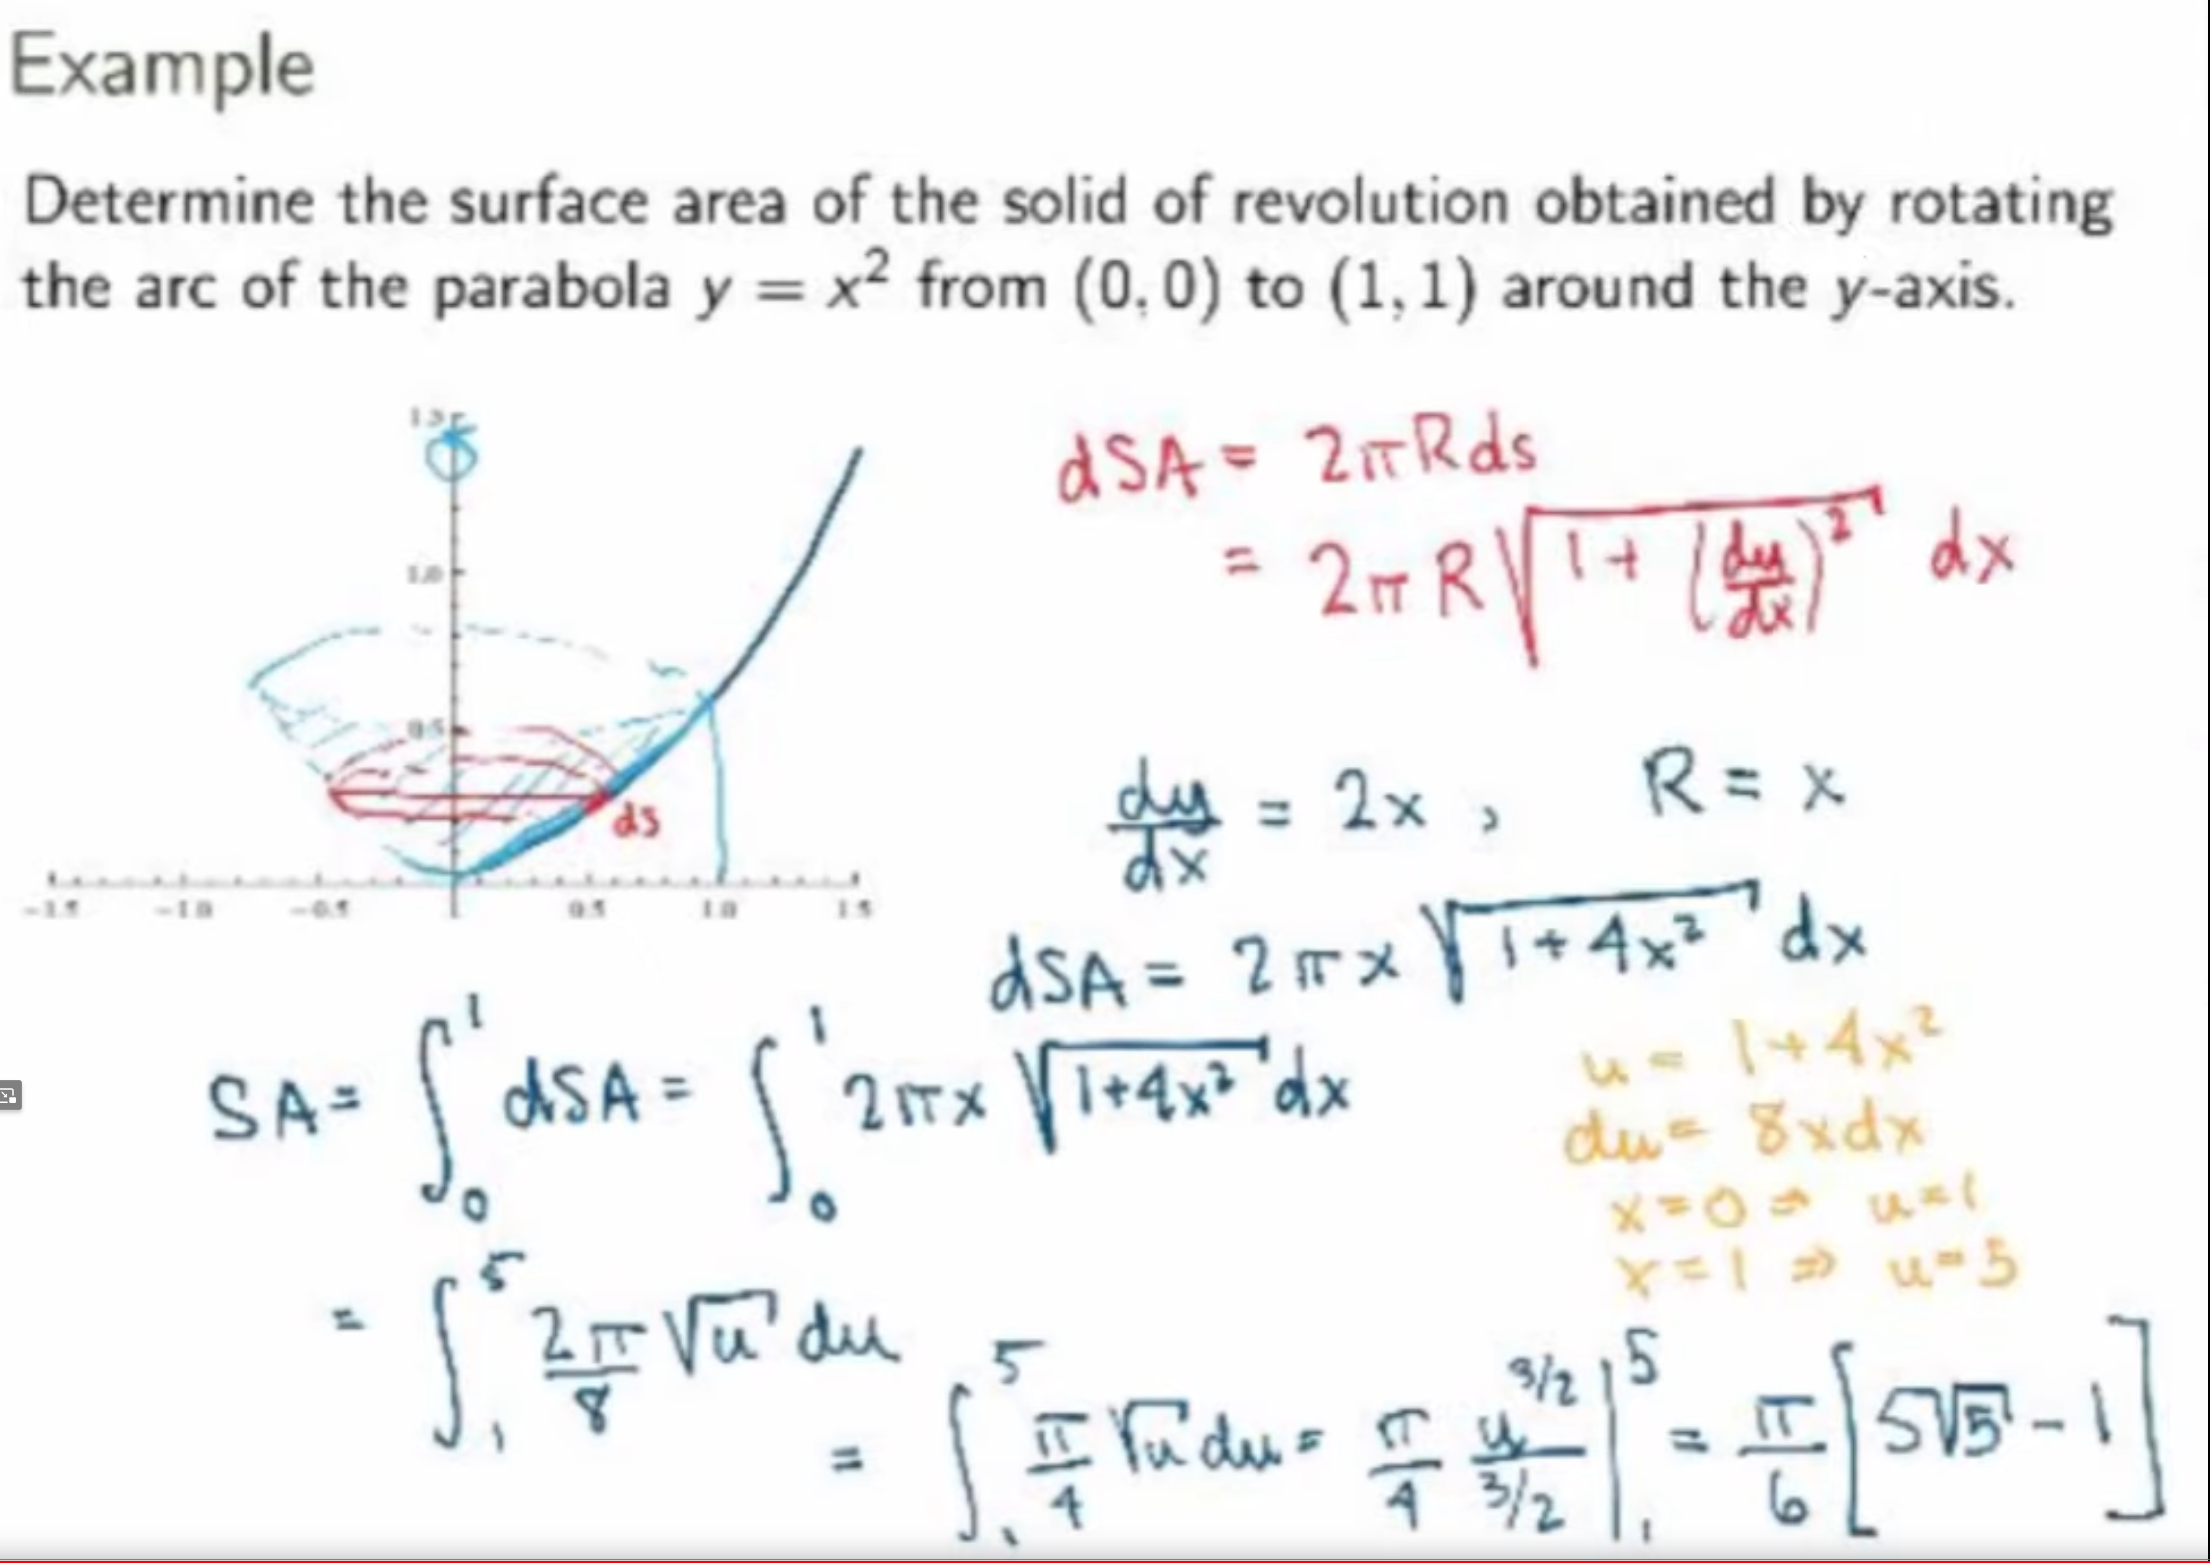 Example
Determine the surface area of the solid of revolution obtained by rotating
the arc of the parabola y = x² from (0,0) to (1,1) around the y-axis.
1.5
1.0
0.5
ds
-1.5 -1.0 -0.5 0.5 1.0 1.5
dSA = 2πRds
= 2πR√(1 + (dy/dx)²) dx
dy/dx = 2x , R = x
dSA = 2πx √(1+4x²) dx
SA = ∫₀¹ dSA = ∫₀¹ 2πx √(1+4x²) dx
u = 1+4x²
du = 8xdx
x=0 ⇒ u=1
x=1 ⇒ u=5
= ∫₁⁵ 2π/8 √u du
= ∫₁⁵ π/4 √u du = π/4 u^(3/2)/(3/2) |₁⁵ = π/6 [5√5 - 1]